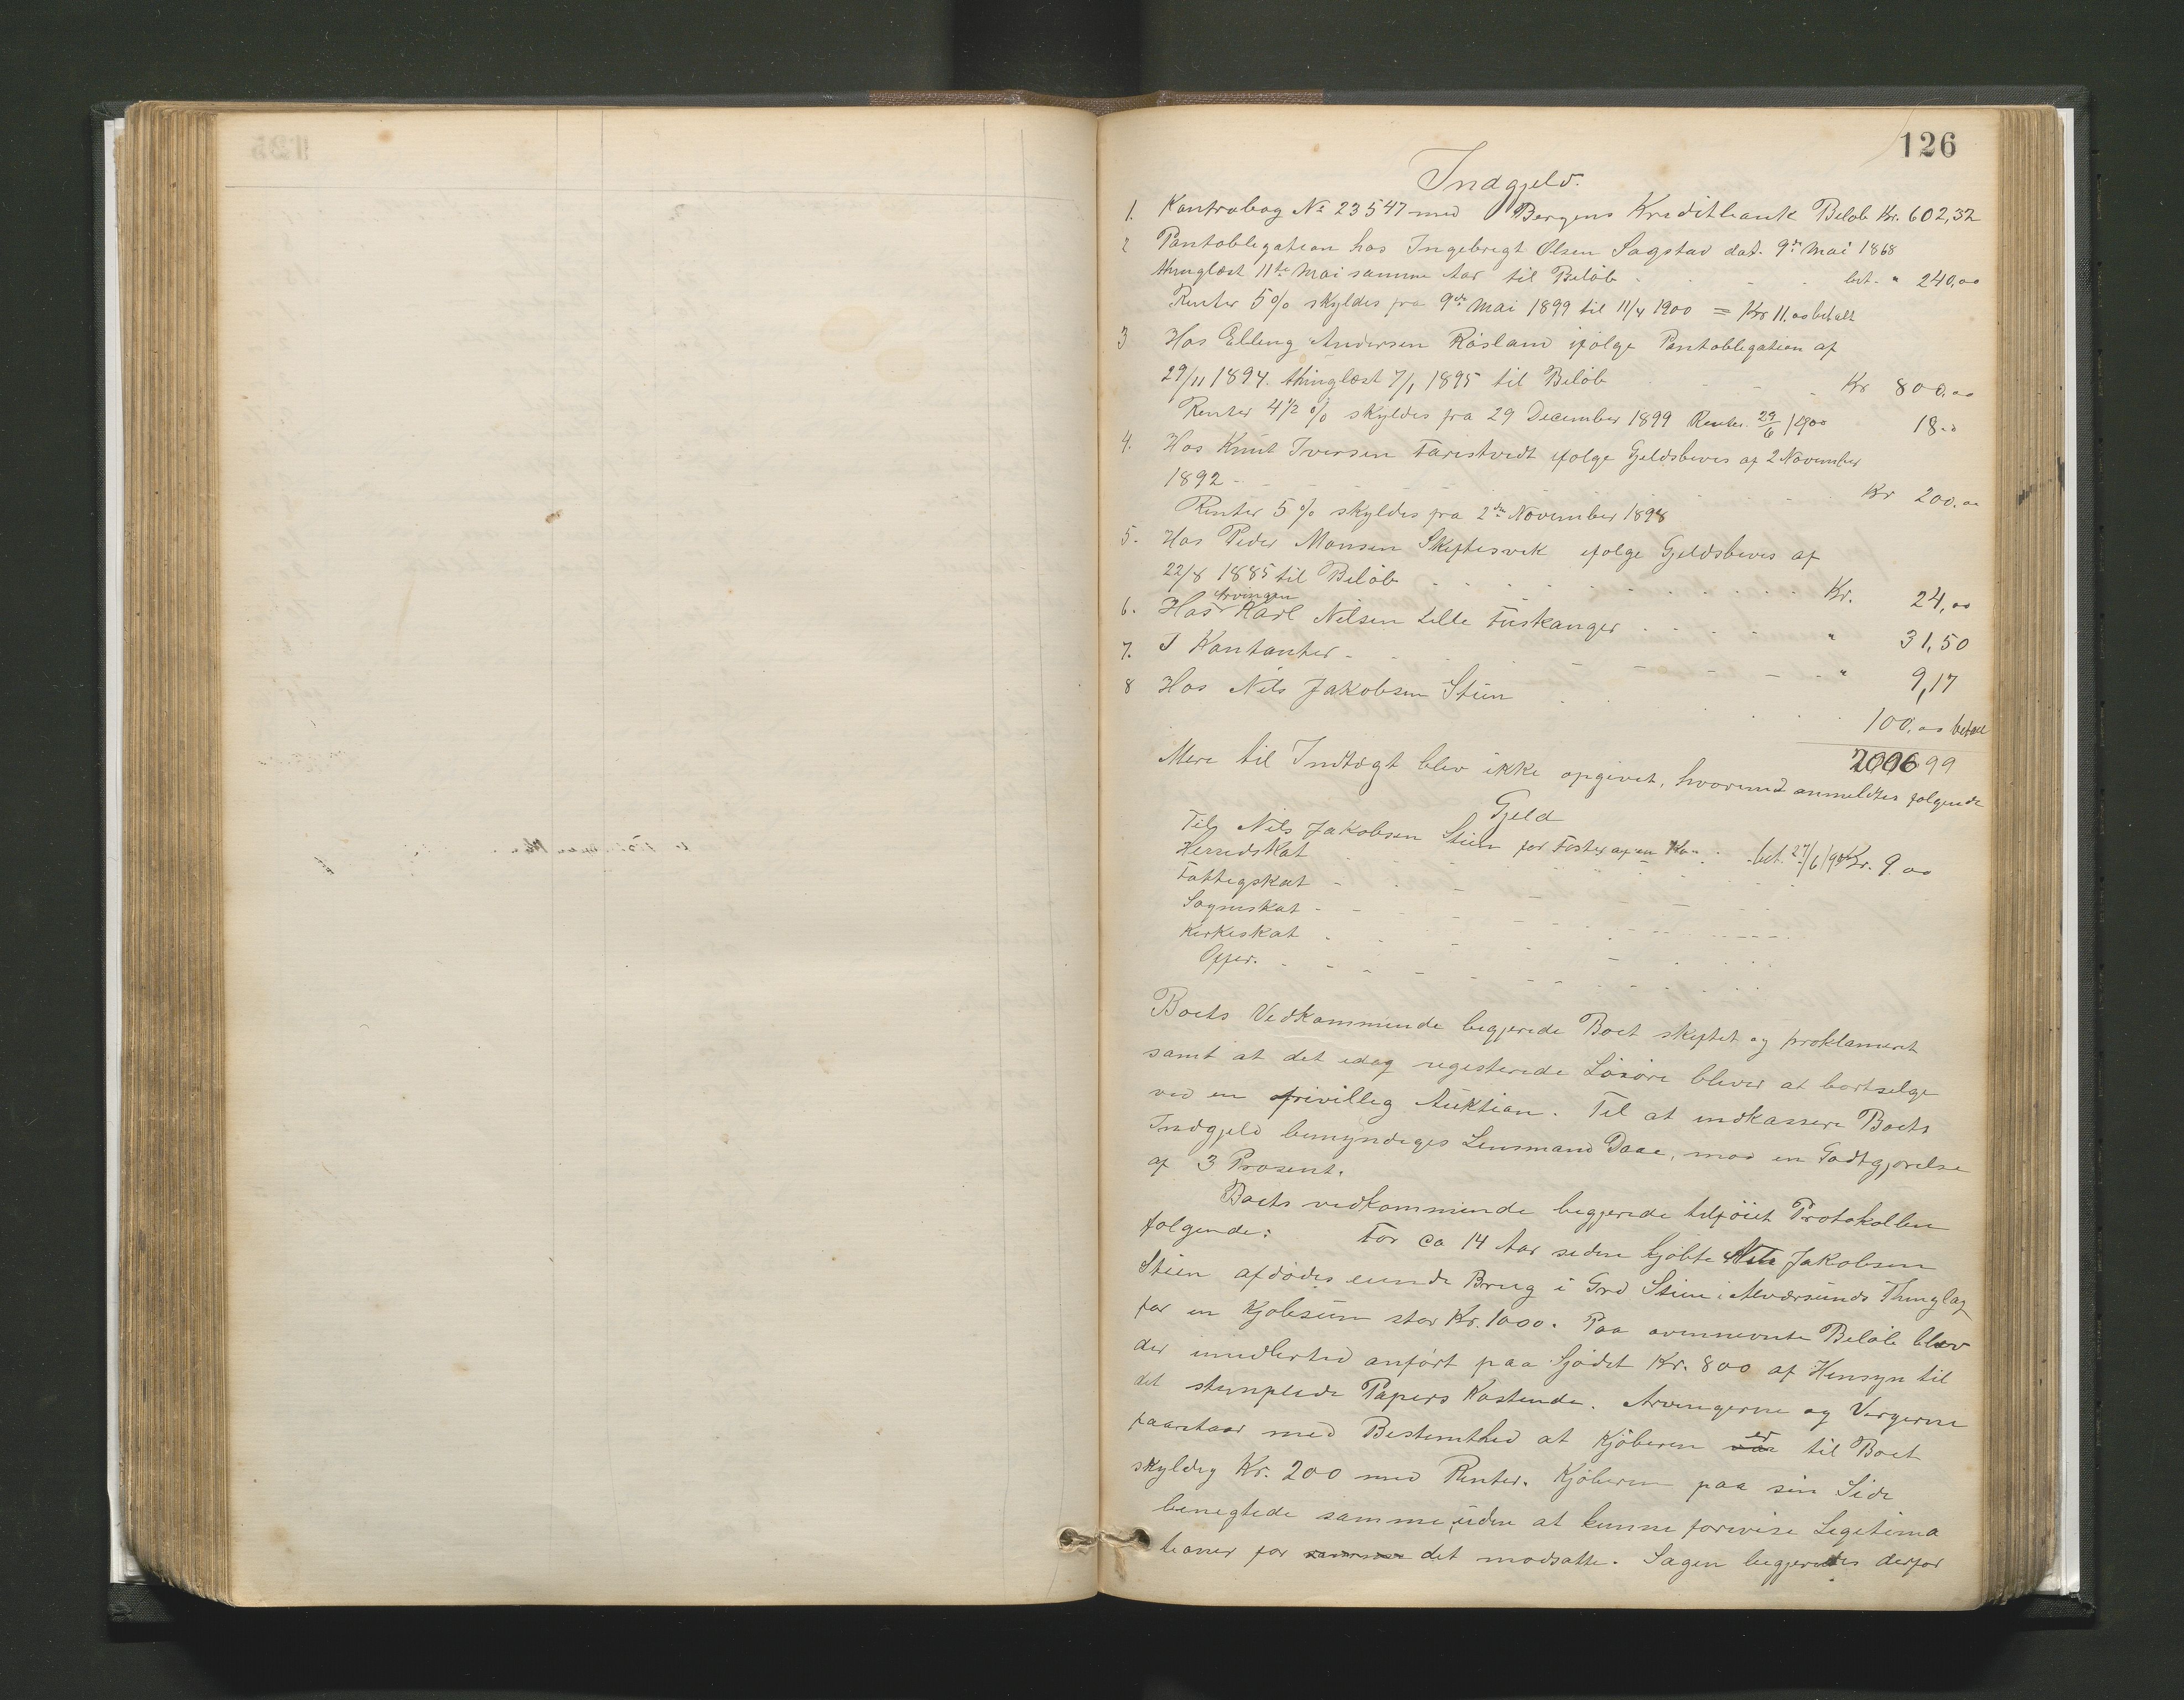 126
Indgjeld.
1. Kontrabog No 23547 med Bergens Kreditbank Beløb Kr. 602,32
2 Pantobligation hos Ingebrigt Olsen Sagstad dat. 9de Mai 1868
thinglæst 11te Mai samme Aar til Beløb . . . bet. " 240,00
Renter 5% skyldes fra 9de Mai 1899 til 11/4 1900 = Kr 11.00 betalt
3 Hos Elling Andersen Røsland ifølge Pantobligation af
29/11 1894. thinglæst 7/1 1895 til Beløb - - - Kr 800,00
Renter 4 1/2 % skyldes fra 29 December 1899 Renter 29/6 1900 18.00
4. Hos Knut Iversen ifølge Gjeldsbevis af 2 November
1892 - - - Kr 200.00
Renter 5% skyldes fra 2den November 1898
5. Hos Peder Monsen Skeftesvik ifølge Gjeldsbevis af
22/8 1885 til Beløb . . . Kr. 24,00
Arvingen
6. Hos Karl Nilsen Lille Fuskanger . . . " 31,50
7. I Kontanter - - - " 9,17
8 Hos Nils Jakobsen Stien . . . 100,00 betalt
2006 99
Mere til Indtægt blev ikke opgivet, hvorimod anmeldtes følgende
Gjeld
Til Nils Jakobsen Stien for Foster af en Ko . bet. 27/6 1900 Kr. 9.00
Herredskat
Fattigskat - - -
Sogneskat - - -
Kirkeskat - - -
Offer. - - -
Boets Vedkommende begjerede Boet skiftet og proklameret
samt at det idag registerede Løsøre bliver at bortselge
ved en frivillig Auktion. Til at indkassere Boets
Indgjeld bemyndiges Lensmand Daae, mod en Godtgjørelse
af 3 Prosent.
Boets vedkommende begjerede tilføiet Protokollen
følgende: For ca 14 Aar siden kjøbte Nils Jakobsen
Stien afdødes eiende Brug i Grd Stien i Alversunds Thinglag
for en Kjøbesum stor Kr. 1000. Paa ovennevnte Beløb blev
der imidlertid anført paa Skjødet Kr. 800 af Hensyn til
det stemplede Papirs Kostende. Arvingerne og Vergerne
paastaar med Bestemthed at Kjøberen var er til Boet
skyldig Kr. 200 med Renter. Kjøberen paa sin Side
benegtede samme, uden at kunne forevise Legitima
tioner for samme det modsatte. Sagen begjeredes derfor